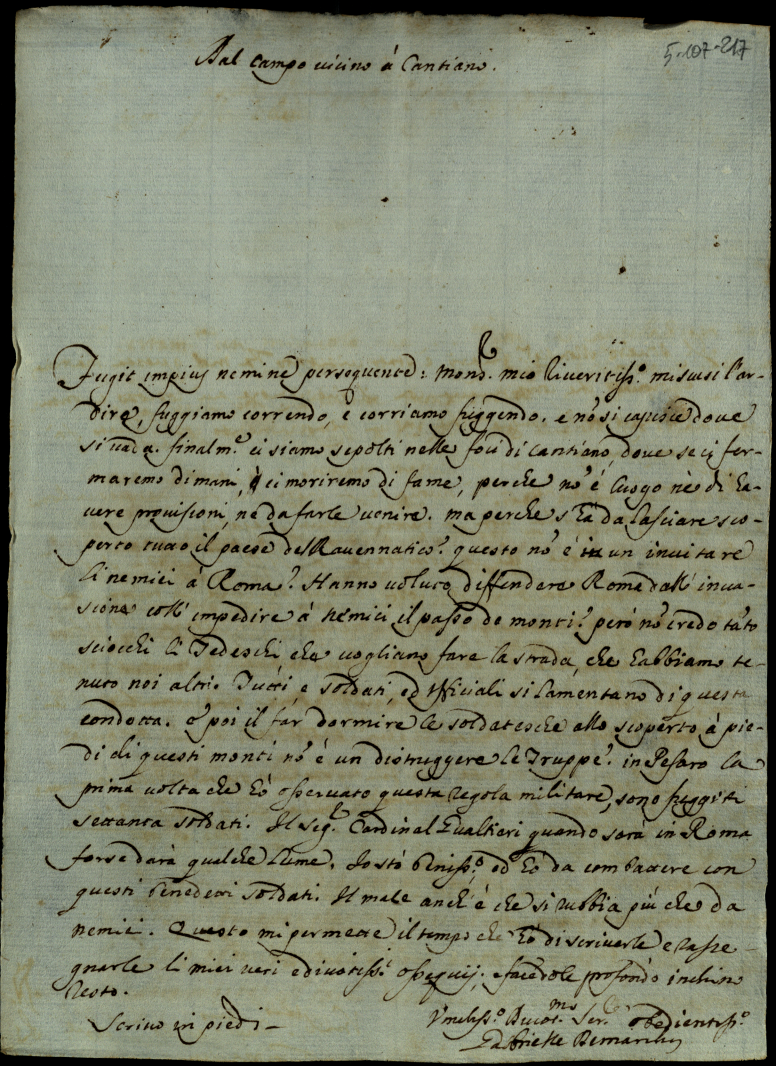 Dal campo vicino á Cantiano.
5-107-217
Fugit impius nemine persequente: Mons.r mio Riveritiss.o mi scusi l'ar-
dire, fuggiamo correndo, e corriamo fuggendo, e nõ si capisce dove
si vada. finalm.e ci siamo sepolti nelle foci di Cantiano, dove se ci fer-
maremo dimani, ci moriremo di fame, perche nõ é luogo nè di ha-
vere provisioni, nè da farle venire. ma perche s'há da lasciare sco-
perto tutto il paese del Ravennatico? questo nõ é un invitare
li nemici á Roma? Hanno voluto diffendere Roma dall'inva-
sione coll'impedire á nemici il passo de monti? peró nõ credo tãto
sciocchi li Tedeschi che vogliano fare la strada, che habbiamo te-
nuto noi altri. Tutti e soldati, ed officiali si lamentano di questa
condotta. e poi il far dormire le soldatesche allo scoperto á pie-
di di questi monti nõ é un distruggere le Truppe? in Pesaro la
prima volta che hó osservato questa regola militare, sono fuggiti
settanta soldati. Il Sig.r Cardinal Gualtieri quando sará in Roma
forse dará qualche lume. Io stó beniss.o, ed hó da combattere con
questi benedetti soldati. Il male anch'é che si rubbia piú che da
nemici. Questo mi permette il tempo che hó di scriverle e rasse-
gnarle li miei veri e divotiss.i ossequij; e facẽdole profondo inchino
resto.
Scrivo in piedi-
Vmiliss.o Divot.mo Ser. obedientiss.o
Gabrielle